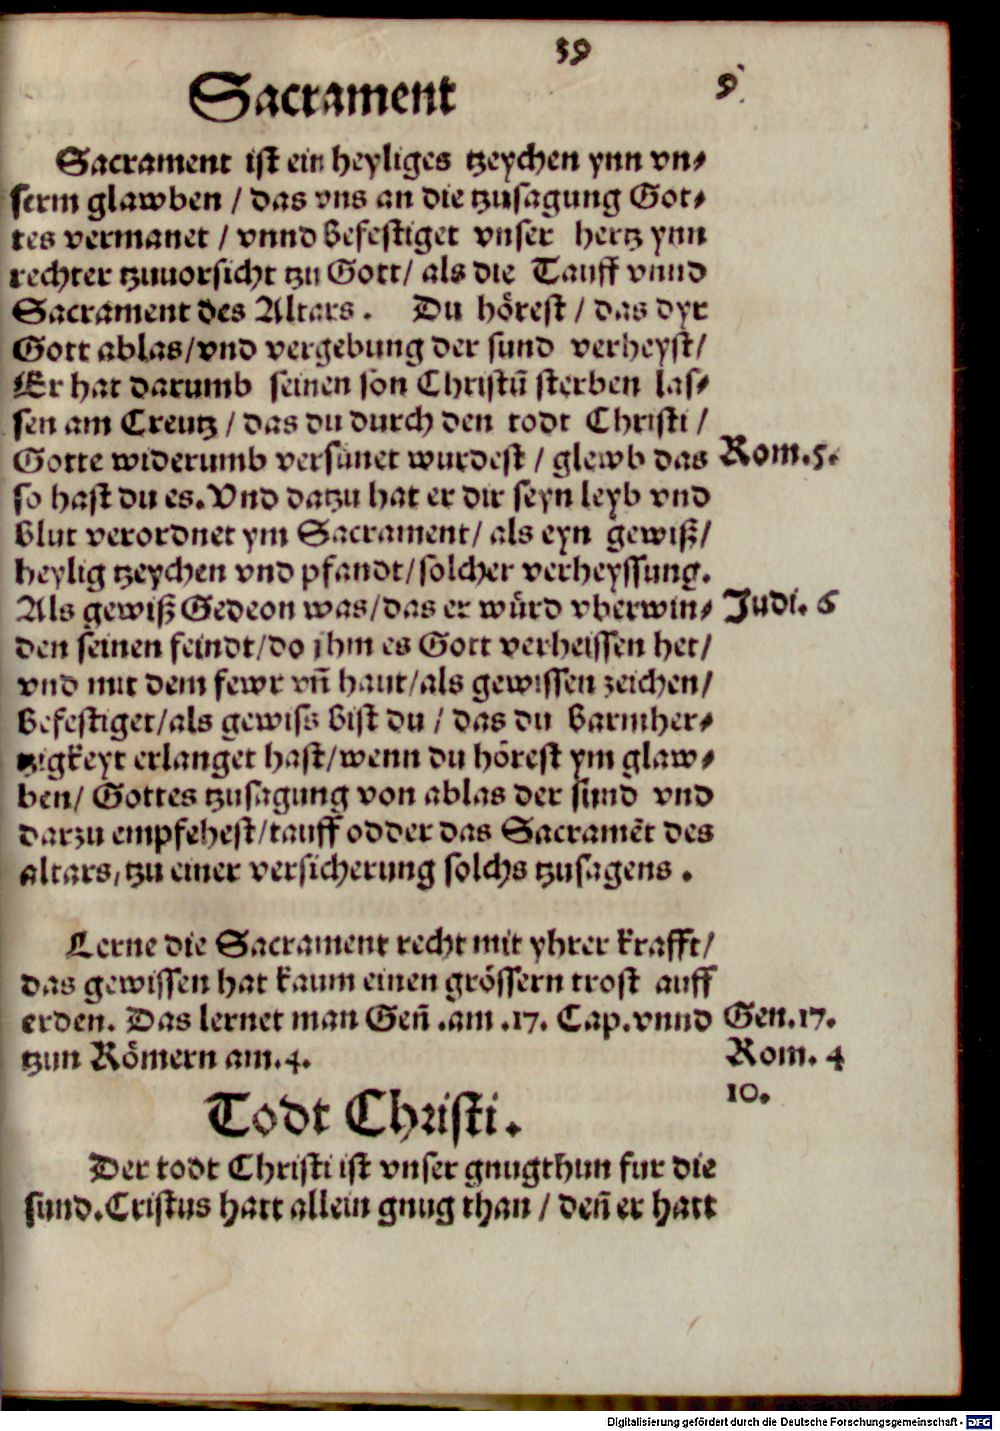 39
9.
Sacrament
Sacrament ist ein heyliges tzeychen ynn vn⸗
serm glawben / das vns an die tzusagung Got⸗
tes vermanet / vnnd befestiget vnser hertz ynn
rechter tzuuorsicht tzu Gott/ als die Tauff vnnd
Sacrament des Altars . Du hörest / das dyr
Gott ablas/vnd vergebung der sund verheyst/
Er hat darumb seinen son Christū sterben las⸗
sen am Creutz / das du durch den todt Christi /
Gotte widerumb versünet wurdest / glewb das Rom.5.
so hast du es. Vnd datzu hat er dir seyn leyb vnd
blut verordnet ym Sacrament/ als eyn gewiß/
heylig tzeychen vnd pfandt/solcher verheyssung.
Als gewiß Gedeon was/das er würd vberwin⸗ Judi. 6
den seinen feindt/do jhm es Gott verheissen het/
vnd mit dem fewr vñ haut/als gewissen zeichen/
befestiget/als gewiss bist du / das du barmher⸗
tzigkeyt erlanget hast/wenn du hörest ym glaw⸗
ben/ Gottes tzusagung von ablas der sund vnd
darzu empfehest/tauff odder das Sacramēt des
altars, tzu einer versicherung solchs tzusagens .
Lerne die Sacrament recht mit yhrer krafft/
das gewissen hat kaum einen grössern trost auff
erden. Das lernet man Geñ .am .17. Cap.vnnd Gen.17.
tzun Römern am.4. Rom. 4
10.
Todt Christi.
Der todt Christi ist vnser gnugthun fur die
sund.Cristus hatt allein gnug than / deñ er hatt
Digitalisierung gefördert durch die Deutsche Forschungsgemeinschaft - DFG